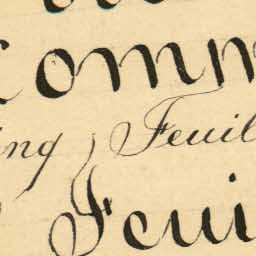 comm
ing, Feuil
Feui